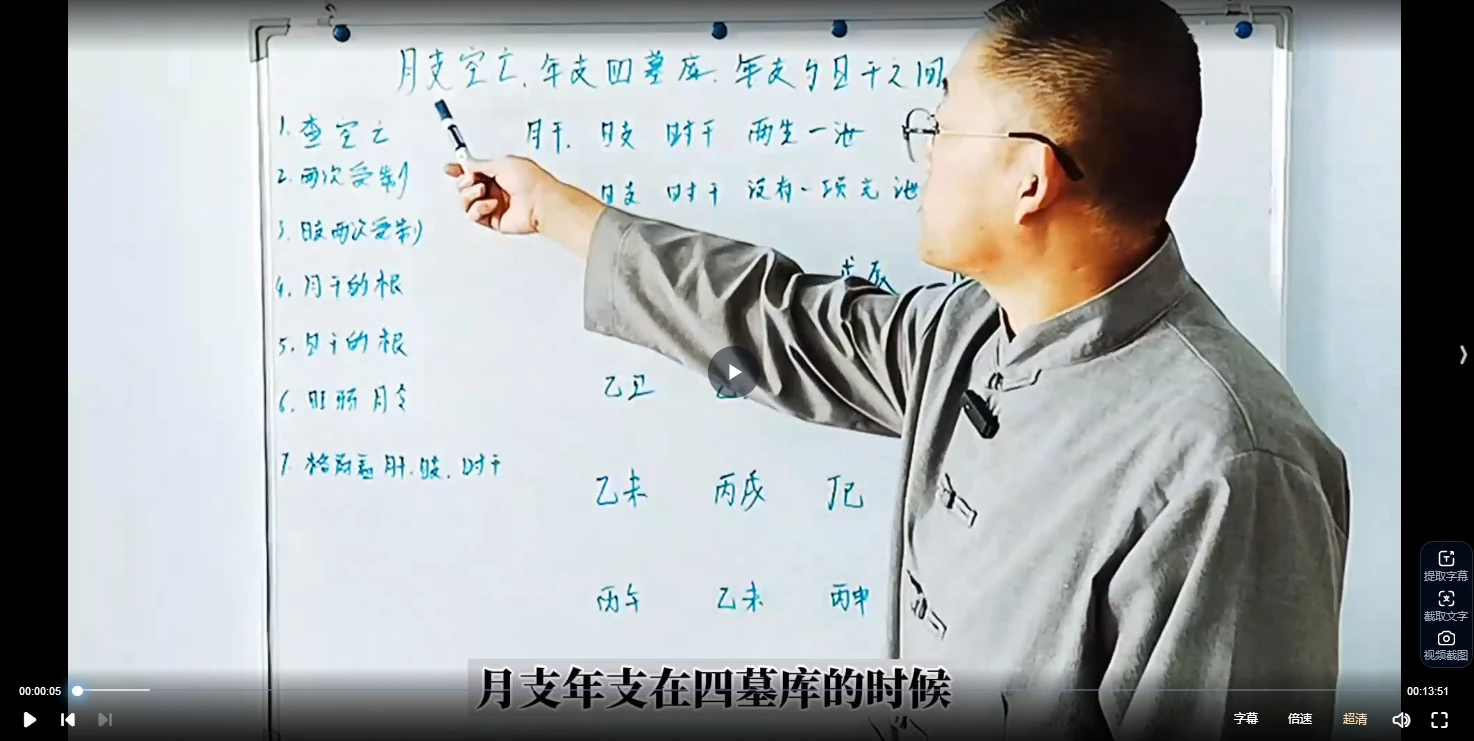 月支空亡.年支四墓库.年支与日干之间
1.查空亡
月干.日支 时干 两生一泄
2.两次受制
日支 时干 没有一项克泄
3.日支两次受制
戊辰
4.月干的根
5.日干的根
乙丑
6.旺弱月令
7.格局看月干.日支.时干
乙未 丙戌 丁巳
丙午 乙未 丙申
月支年支在四墓库的时候
提取字幕
截取文字
视频截图
00:00:05
00:13:51
字幕 倍速 超清